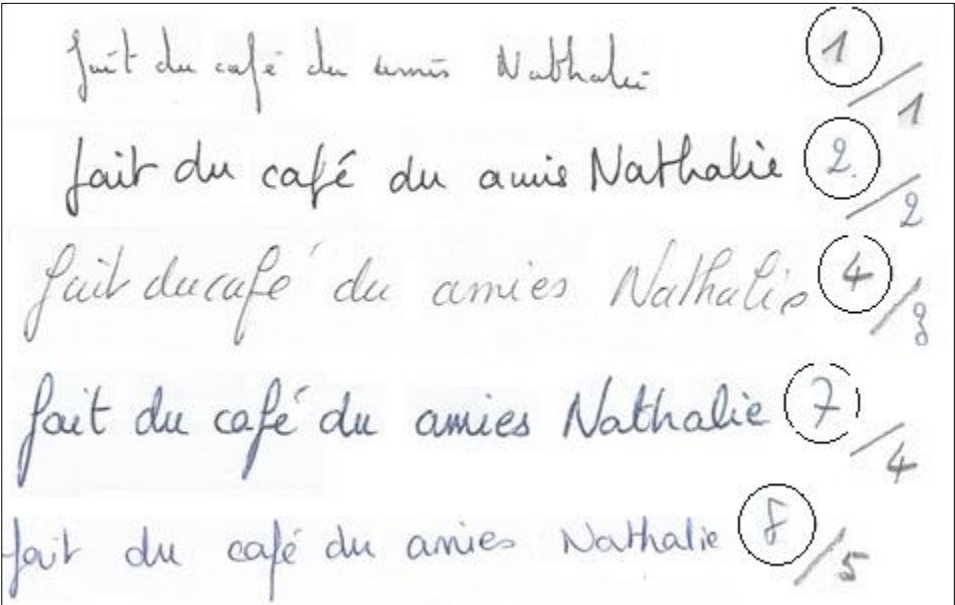 fait du café du amis Nathalie 1/1
fait du café du amis Nathalie 2/2
fait du café du amies Nathalie 4/3
fait du café du amies Nathalie 7/4
fait du café du amies Nathalie 8/5